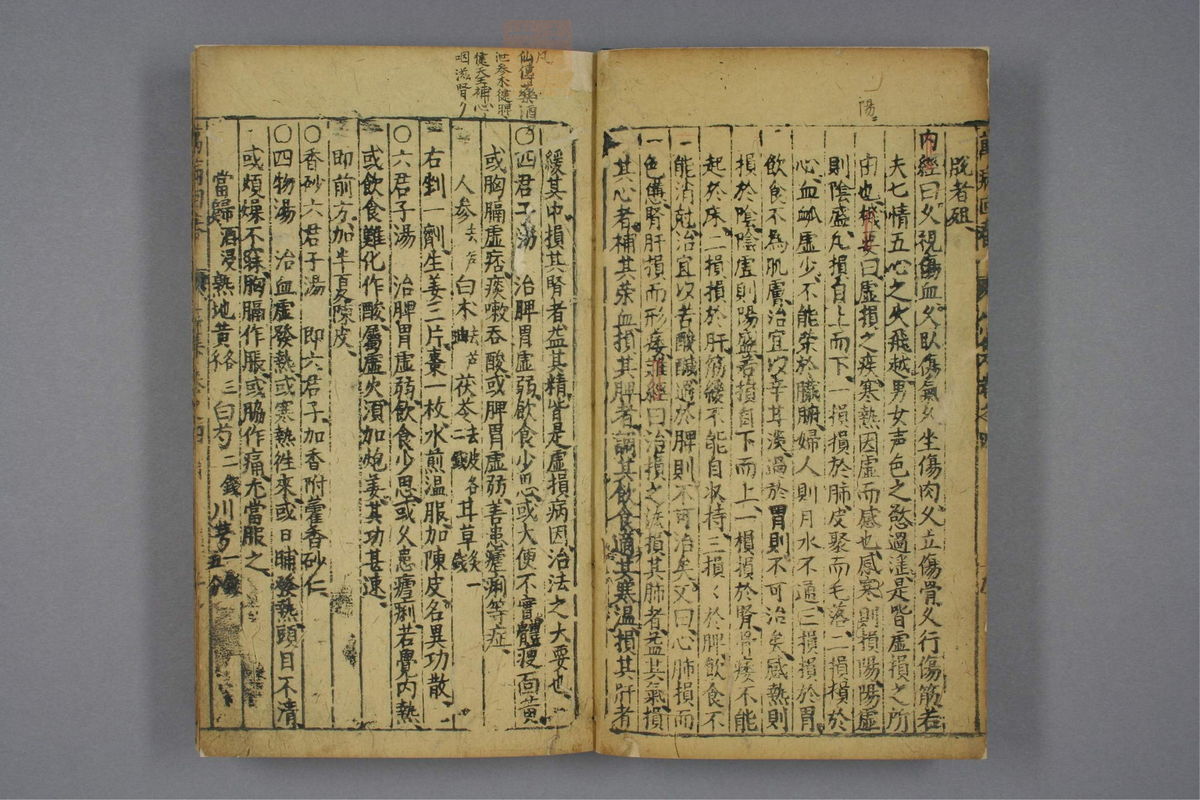 陽
脱者疑
内經曰久視傷血久臥傷氣久坐傷肉久立傷骨久行傷筋若
夫七情五心之火飛越男女声色之慾過淫是皆虛損之所
由也機要曰虛損之疾寒熱因虛而感也感寒則損陽陽虛
則陰盛凡損自上而下一損損於肺皮聚而毛落二損損於
心血䘐虛少不能荣於臟腑婦人則月水不通三損損於胃
飲食不為肌膚治宜以辛甘淡過於胃則不可治矣感熱則
損於陰陰虛則陽盛若損自下而上一損損於腎骨痿不能
起於床二損損於肝筋緩不能自收持三損〻於脾飲食不
能消尅治宜以苦酸鹹過於脾則不可治矣又曰心肺損而
色憊腎肝損而形痿難經曰治損之法損其肺者益其氣損
其心者補其荣血損其脾者調其飲食適其寒温損其肝者
凡
仙傳藥酒
健
天王補心
咽滋腎
緩其中損其腎者益其精皆是虛損病因治法之大要也
〇四君子湯 治脾胃虛弱飲食少思或大便不實體瘦面黄
或胸膈虛痞痰嗽吞酸或脾胃虛弱善患瘧痢等症
人参去芦 白术去芦 茯苓去皮各二錢 甘草炙一錢
右剉一劑生姜三片棗一枚水煎温服加陳皮名異功散
〇六君子湯 治脾胃虛弱飲食少思或久患瘧痢若覺内熱
或飲食難化作酸屬虛火須加炮姜其功甚速
即前方加半夏陳皮
〇香砂六君子湯 即六君子加香附藿香砂仁
〇四物湯 治血虛發熱或寒熱徃來或日晡發熱頭目不清
或煩燥不寐胸膈作脹或脇作痛尤當服之
當歸酒浸 熟地黄各三 白芍二錢 川芎一錢五分